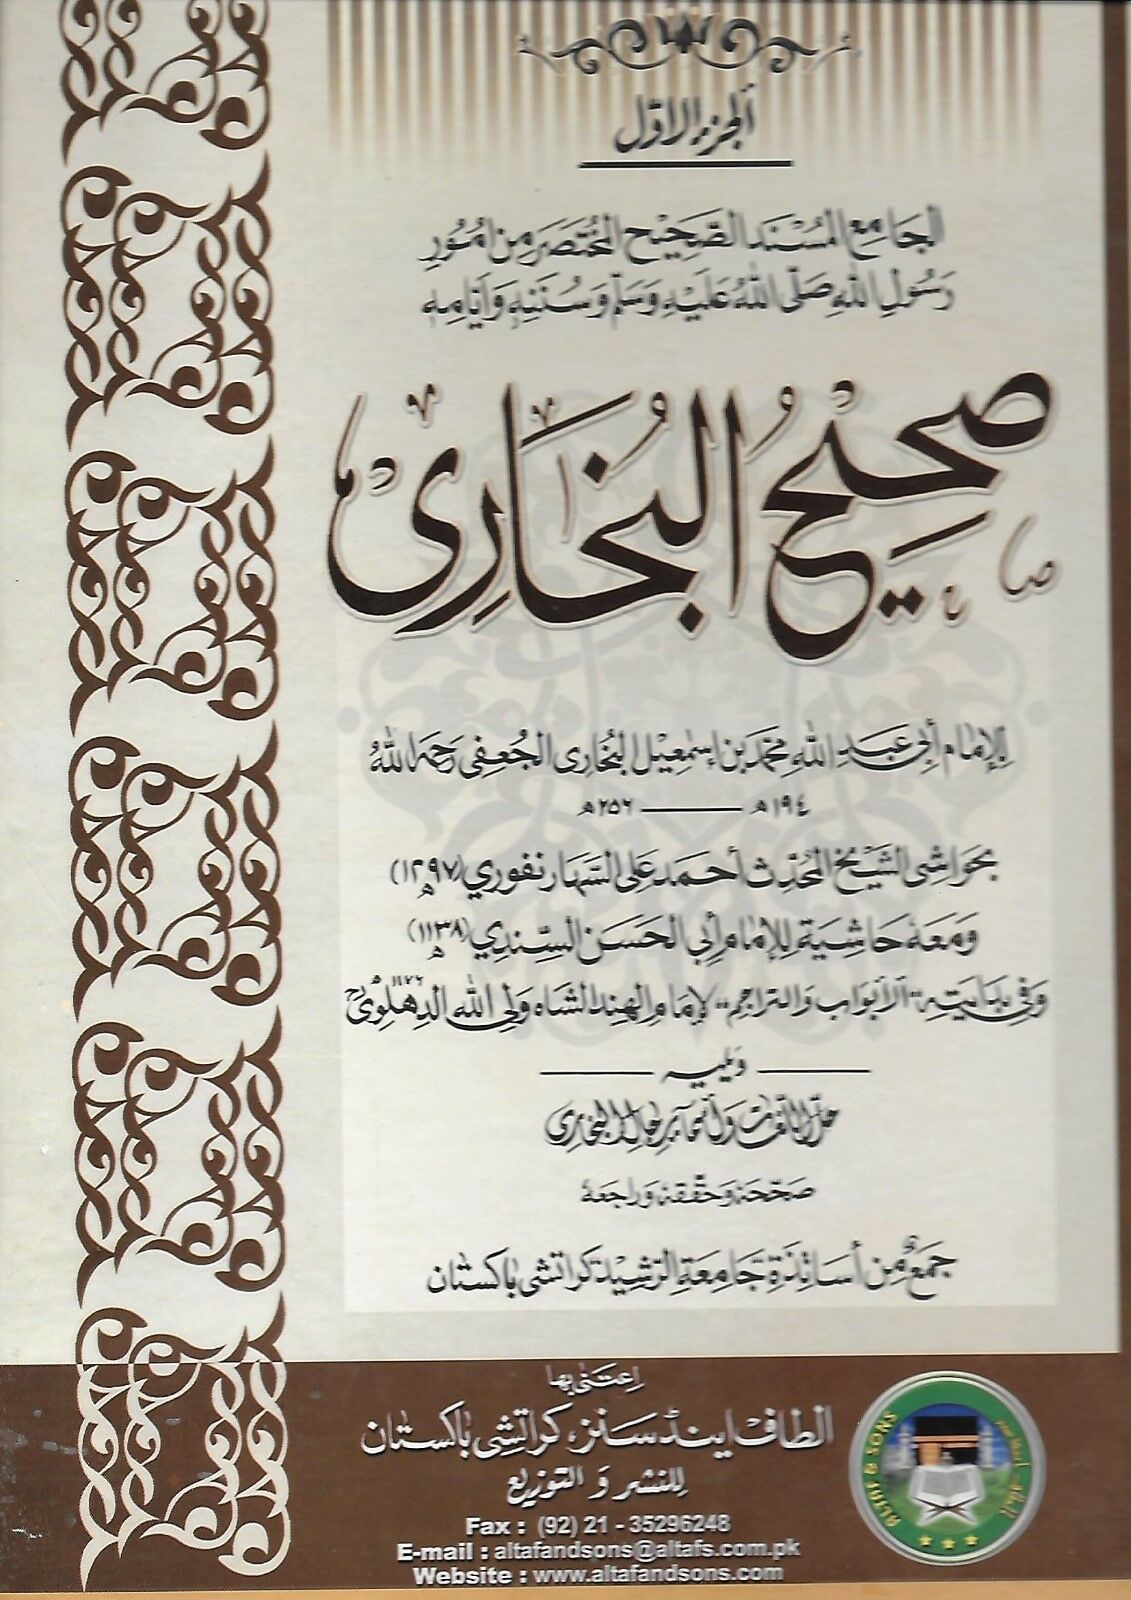 ألجزء الاوّل
الجَامِع المُسْنَد الصَّحِيْح المُخْتَصَر مِن اُمُوْرِ
رَسُوْلِ اللهِ صَلَّی اللهُ عَلَيْهِ وَسَلَّم وَسُنَنِهٖ وَاَيَّامِهٖ
صَحِيْحُ البُخَارِیْ
لِلإمَام أبِی عَبدِ اللهِ مُحَمَّد بن اِسْمٰعِيْل البُخَاری الجُعفِی رَحِمَہُ اللهُ
١٩٤ھ ــــــــ ٢٥٦ھ
بحَوَاشِی الشَّيْخ المُحَدِّث أحمَد عَلی السَّهَارنفُوري (١٢٩٧ھ)
وَمَعَهٗ حَاشِيَة لِلإمَام أبِی الحَسَن السِّندِي (١١٣٨ھ)
وَفِی بِدَايَتِهٖ "ألأبوَاب وَالتراجِم" لإمَامِ الهِند الشاه وَلی الله الدِّهْلَوِیؒ ١١٧٦
وَيَليهِ
رِجال البُخارِی
صَحَّحَهٗ وَحَقَّقَهٗ وَرَاجَعَهٗ
جَمَعٌ مِّن أسَاتِذَةِ جَامِعَةِ الرَّشِيْد كَرَاتشِی بَاكِستَان
اِعتَنٰی بِهَا
الطاف اينڈ سنز، كراتشی باكستان
لِلنشر وَ التوزيع
Fax : (92) 21 - 35296248
E-mail : altafandsons@altafs.com.pk
Website : www.altafandsons.com
ALTAF & SONS
الطاف اينڈ سنز